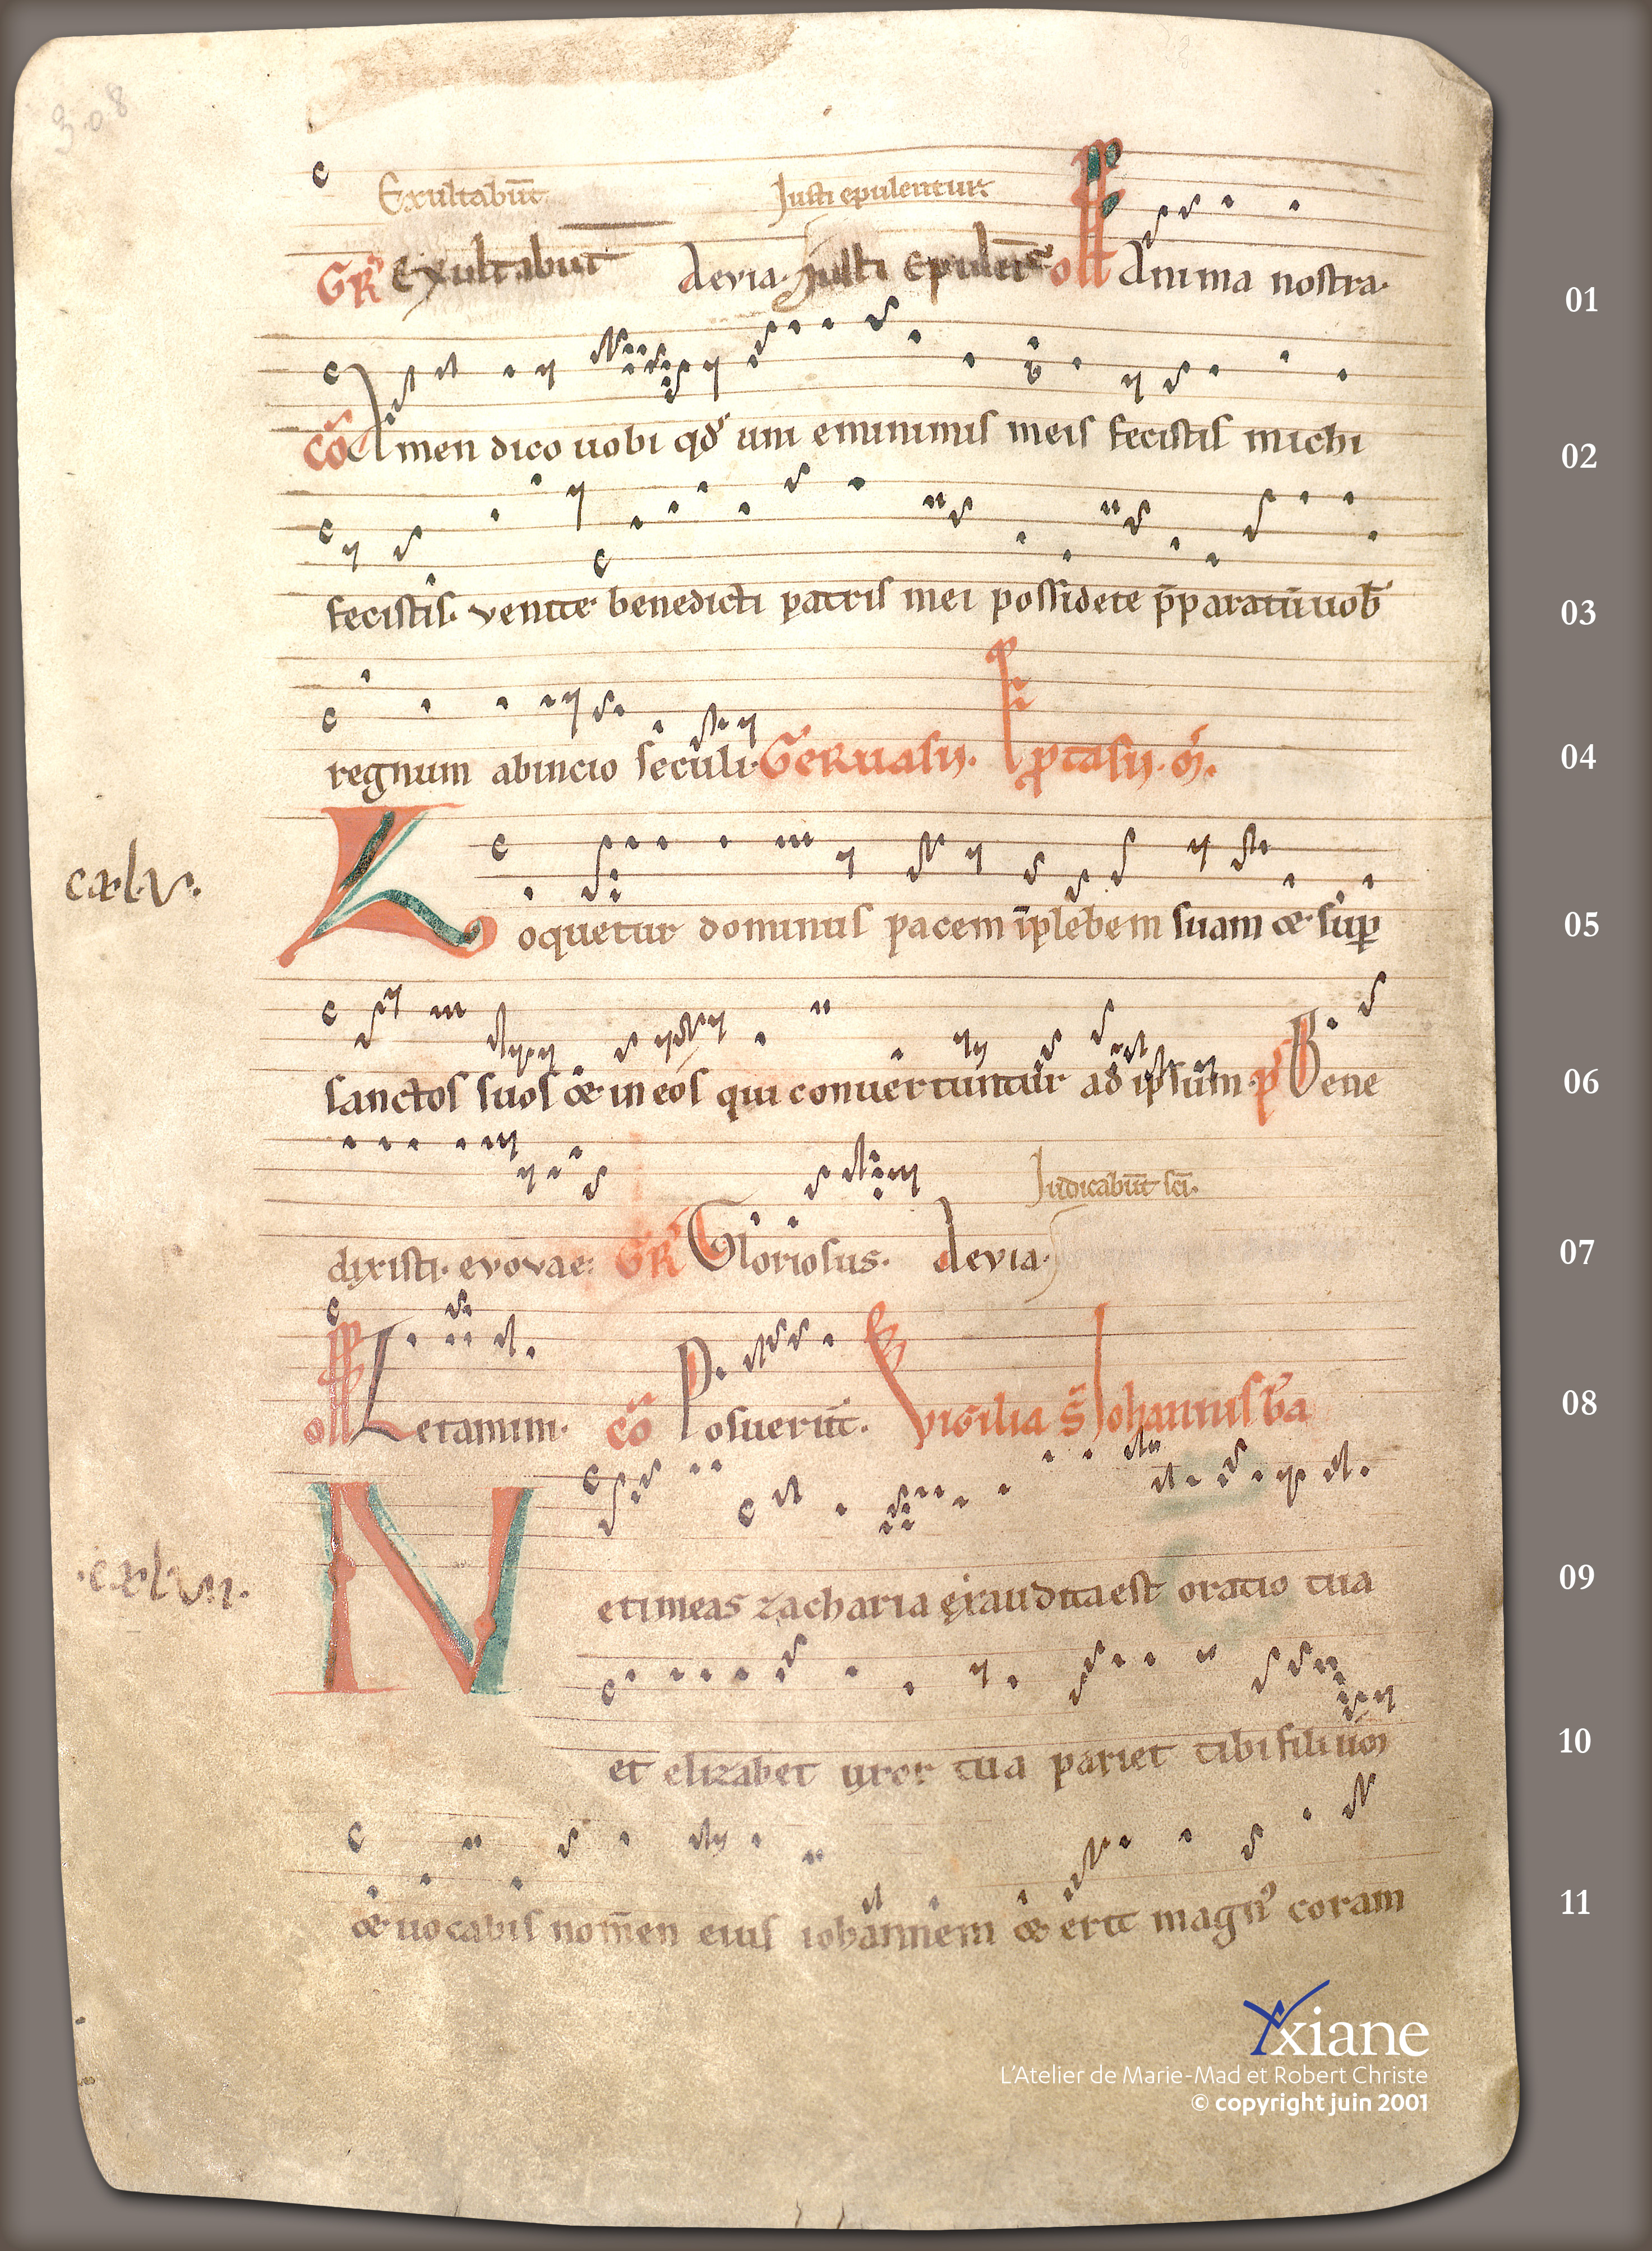 308
Exultabūt Justi epulentur
GR Exultabūt devia. Justi epulēt off Anima nostra. 01
cō Amen dico uobi qđ uni eminimis meis fecistis michi 02
fecistis. venite benedicti patris mei possidete p̄paratū uob̄ 03
regnum abinicio seculi. Geruasii. Et ptasii. 04
cxlv.
Loquetur dominus pacem īplebem suam & sup 05
sanctos suos & in eos qui convertuntur ad ipsum. p̄ Bene 06
Judicabūt sc̄i.
dixisti. evovae. GR Gloriosus. devia. 07
off Letamini. cō Posuerūt. Vigilia s̄ Iohannis ba 08
.cxlvii.
Ne timeas zacharia exaudita est oratio tua 09
et elizabet uxor tua pariet tibi filium 10
& uocabis nomen eius iohannem & erit magn᾿ coram 11
Yxiane
L'Atelier de Marie-Mad et Robert Christe
© copyright juin 2001